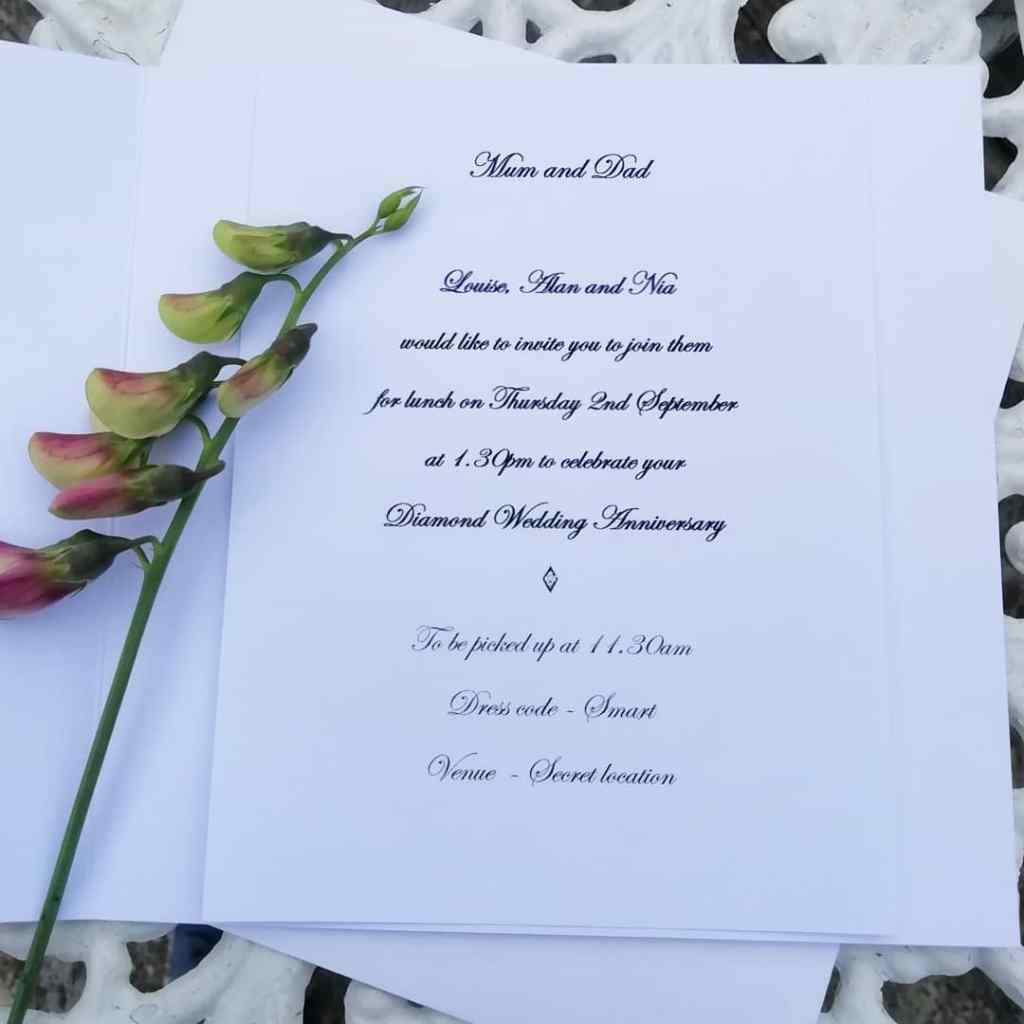 Mum and Dad
Louise, Alan and Nia
would like to invite you to join them
for lunch on Thursday 2nd September
at 1.30pm to celebrate your
Diamond Wedding Anniversary
To be picked up at 11.30am
Dress code - Smart
Venue - Secret location